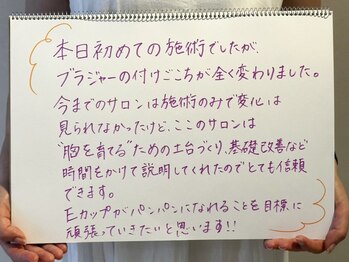 本日初めての施術でしたが、
ブラジャーの付けごこちが全く変わりました。
今までのサロンは施術のみで変化は
見られなかったけど、ここのサロンは
"胸を育てる"ための土台づくり、基礎改善など
時間をかけて説明してくれたのでとても信頼
できます。
Eカップがパンパンになれることを目標に
頑張っていきたいと思います!!